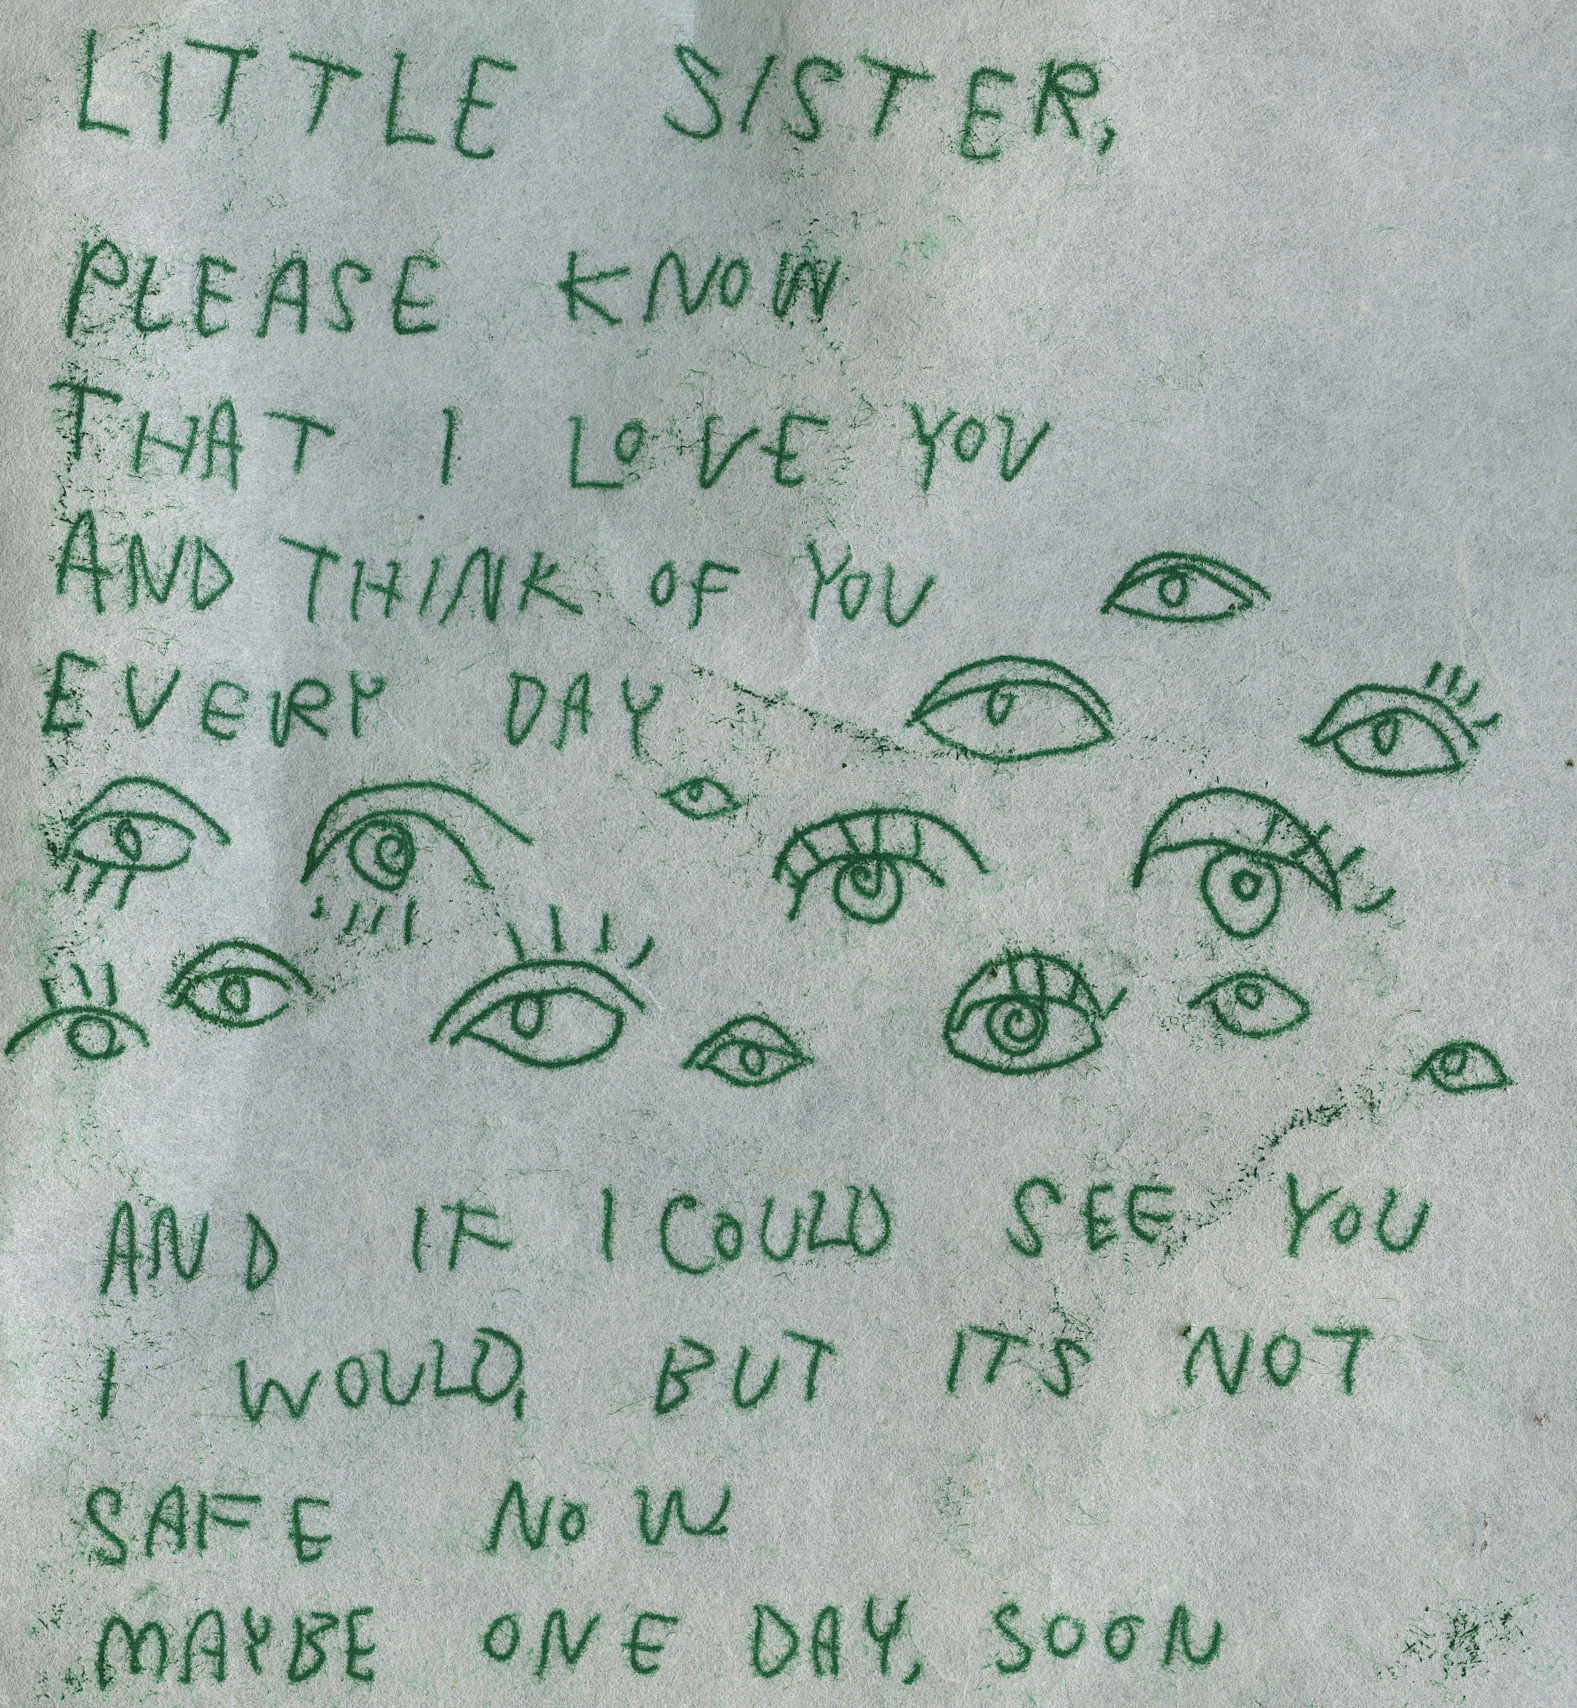 LITTLE SISTER,
PLEASE KNOW
THAT I LOVE YOU
AND THINK OF YOU
EVERY DAY
AND IF I COULD SEE YOU
I WOULD, BUT ITS NOT
SAFE NOW
MAYBE ONE DAY, SOON